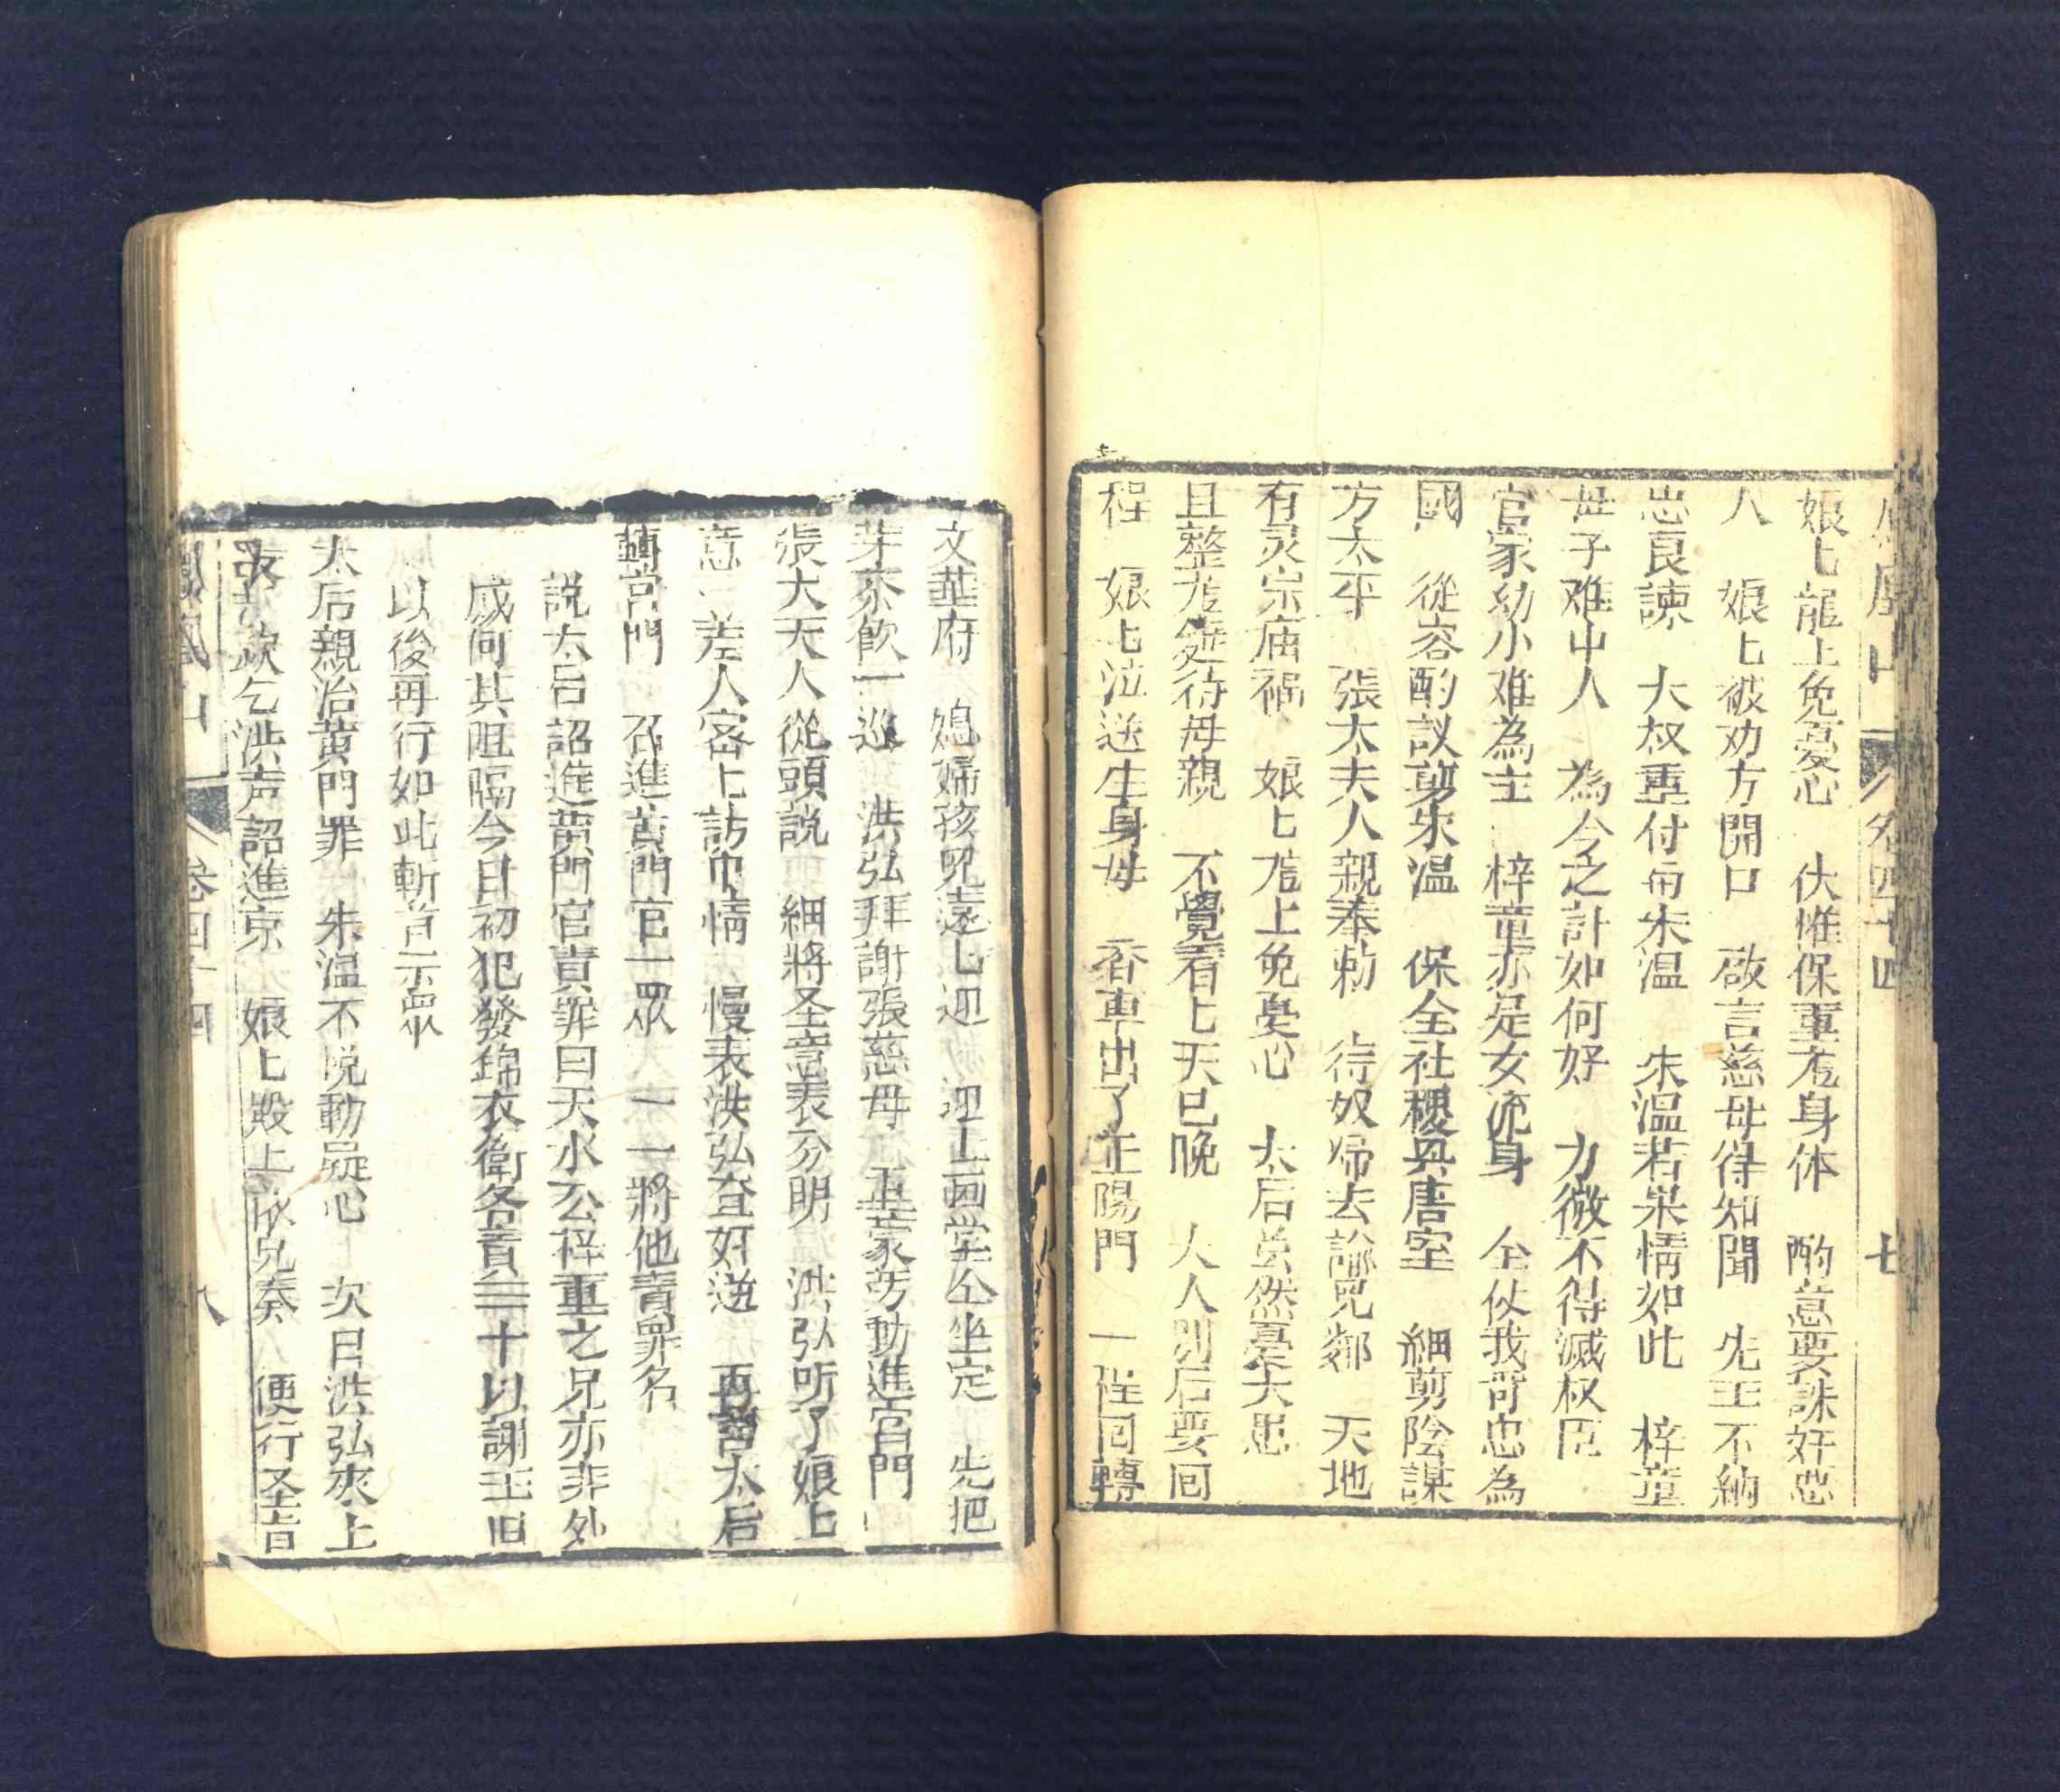 鳳凰山 卷四十四 七
娘匕龍上免憂心 伏惟保重老身体 酌意要誅奸惡
人 娘匕被劝方開口 啟言慈母得知聞 先王不納
忠良諫 大叔重付与朱温 朱温若果情如此 梓童
母子难中人 為今之計如何好 力微不得滅权臣
官家幼小难為主 梓童亦是女流身 仝伩我哥忠為
國 從容酌议剪朱温 保全社稷與唐室 細剪陰謀
方太平 張太夫人親奉勅 待奴歸去諭兄鄰 天地
有灵宗庙福 娘匕龍上免憂心 太后虽然憂大患
且整龙筵待母親 不覺看匕天已晚 大人别后要回
程 娘匕泣送生身母 香車出了正陽門 一程回轉
文華府 媳婦孩児遠匕迎 迎上画堂仝坐定 先把
芽茶飲一巡 洪弘拜謝張慈母 重蒙劳動進宫門
張大夫人從頭説 細將圣意表分明 洪弘听了娘上
意 差人密上訪巾情 慢表洪弘查奸逆 再說太后
轉宫門 召進黄門官一眾 一一將他責罪名
説太后詔進黄門官責罪曰天水公梓童之兄亦非外
戚何其阻隔今日初犯發錦衣衛各責三十以謝王旧
以後再行如此斬首示眾
太后親治黄門罪 朱温不悦動疑心 次日洪弘來上
表 欽乞洪声詔進京 娘上殿上依兄奏 便行圣旨
鳳凰山 卷四十四 八